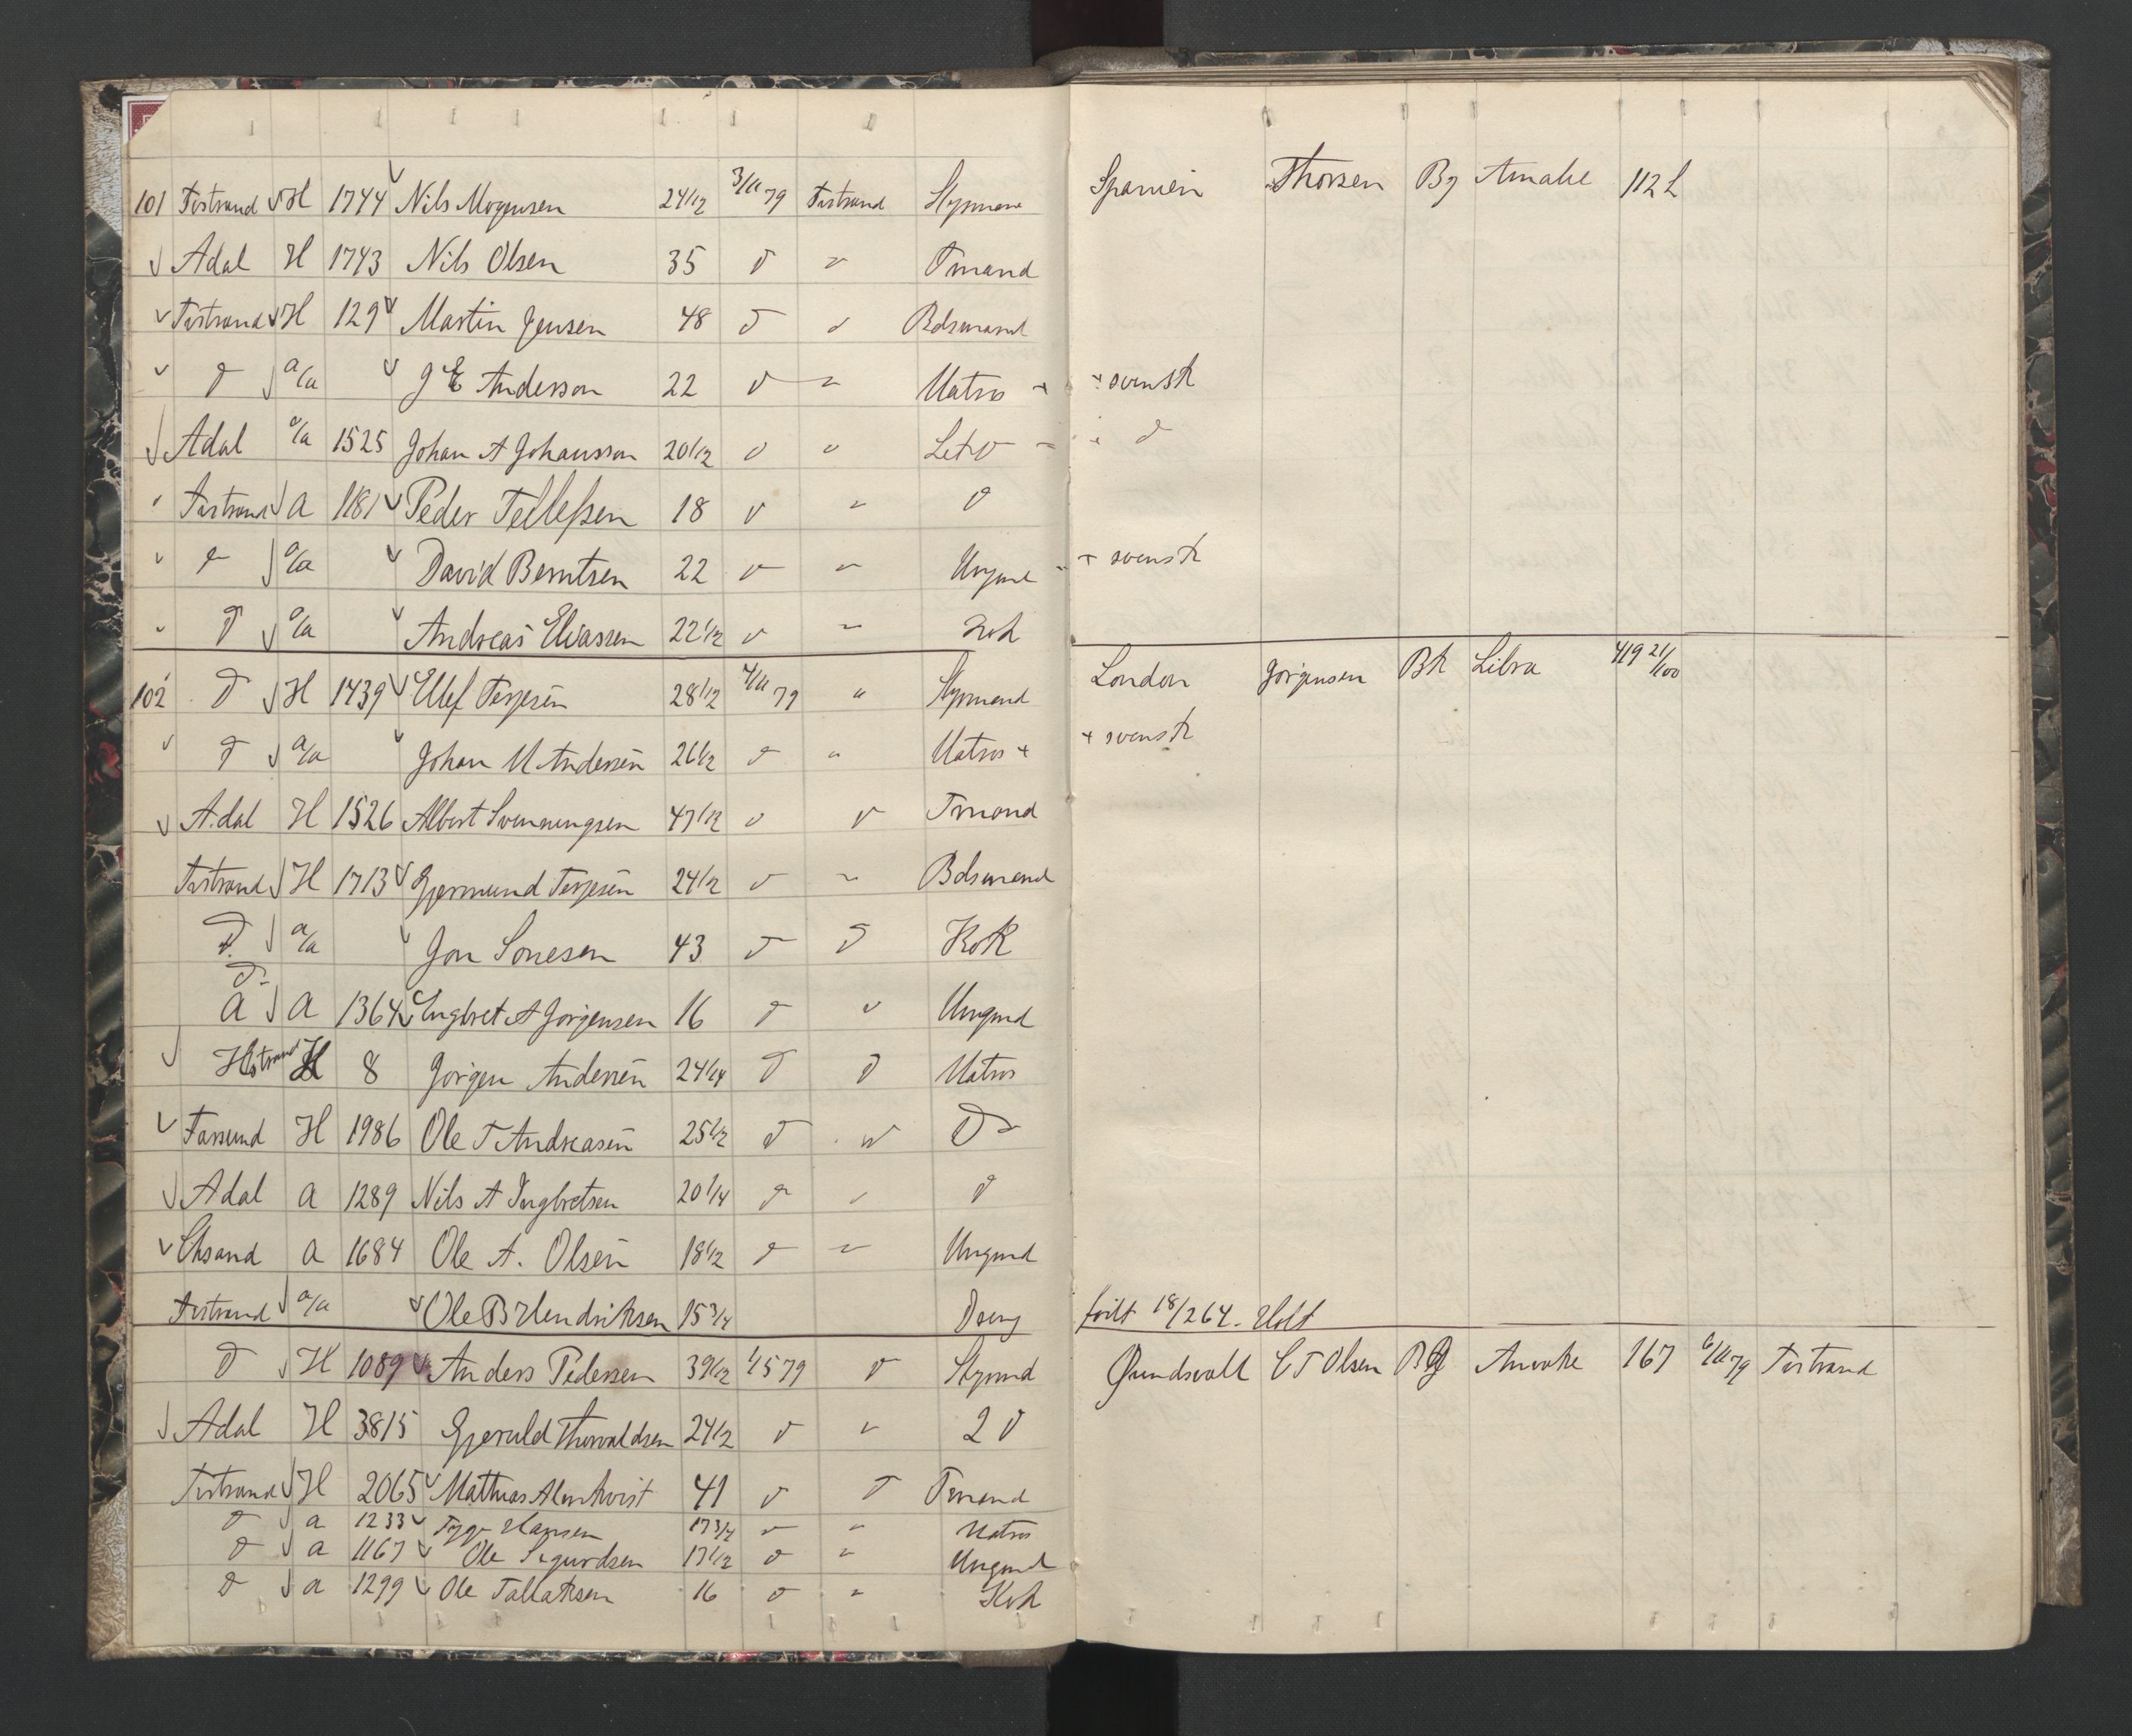 101 Tvstrand H 1744 Nils Mogensen 24 1/2 3/11 79 Tvstrand Stypmann Spanien Thorsen Bg 112 L
Adal H 1743 Nils Olsen 35 Tmand
Tvstrand H 129 Martin Jensen 48 Bdsmand
a/a J E Andersson 22 Matros + + svensk
Adal a/a 1525 Johan A Johansson 20 1/2 Let +
Tvstrand a 1181 Peder Tellefsen 18
a/a David Berntsen 22 Ungmd + svensk
a/a Andreas Eliassen 22 1/2 Kok
102 H 1439 Ellef Terjesen 28 1/2 4/11 79 " Stypmand London Jørgensen Bk Libra 419 21/100
a/a Johan M Andersen 26 1/2 " Matros + + svensk
Adal H 1526 Albert Svenningsen 47 1/2 Tmand
Tvstrand H 1713 Gjermund Terjesen 24 1/2 Bdsmand
a/a Jon Sonesen 43 Kok
a 1364 Engbret A Jørgensen 16 Ungmd
H 8 Jørgen Andersen 24 1/4 Matros
Farsund H 1986 Ole T Andreasen 25 1/2
Adal a 1289 Nils A Ingbretsen 20 1/4
Chsand a 1684 Ole A. Olsen 18 1/2 Ungmd
Tvstrand a/a Ole B Hendriksen 15 3/4 Dreng født 18/2 64. Holt
H 1089 Anders Pedersen 39 1/2 79 Stypmd Grundsvall C T Olsen Bg 167 6/11 79 Tvstrand
Adal H 3815 Gjeruld Thorvaldsen 24 1/2 2
Tvstrand H 2065 Mathias Almkvist 41 Tmand
a 1233 Hansen 17 3/4 Matros
a 1167 Ole Sigurdsen 17 1/2 Ungmd
a 1299 Ole Tallaksen 16 Kok